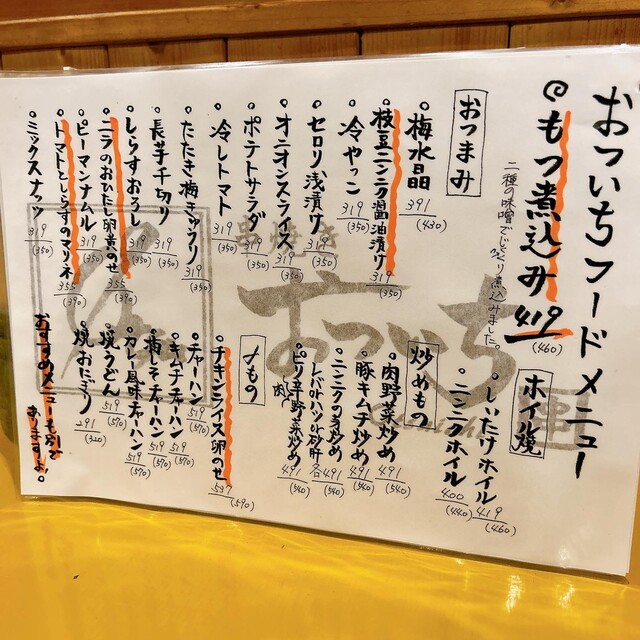 おついちフードメニュー
もつ煮込み 419 (460)
二種の味噌でじっくり煮込みました。
おつまみ
梅水晶 391 (430)
枝豆ニンニク醤油漬け 319 (350)
冷やっこ 319 (350)
セロリ浅漬け 319 (350)
オニオンスライス 319 (350)
ポテトサラダ 319 (350)
冷しトマト 319 (350)
たたき梅キュウリ 319 (350)
長芋千切り 319 (350)
しらすおろし 319 (350)
ニラのおひたし卵黄のせ 355 (390)
ピーマンナムル 319 (350)
トマトとしらすのマリネ 355 (390)
ミックスナッツ 319 (350)
ホイル焼
しいたけホイル 419 (460)
ニンニクホイル 400 (440)
炒めもの
肉野菜炒め 491 (540)
豚キムチ炒め 491 (540)
ニンニクの芽炒め 491 (540)
レバorハツor砂肝 各491 (540)
ピリ辛肉野菜炒め 491 (540)
〆もの
チキンライス卵のせ 537 (590)
チャーハン 519 (570)
キムチチャーハン 519 (570)
梅しそチャーハン 519 (570)
カレー風味チャーハン 519 (570)
焼うどん 519 (570)
焼おにぎり 291 (320)
おすすめメニューも別で
ありますよ。
串焼き
おついち